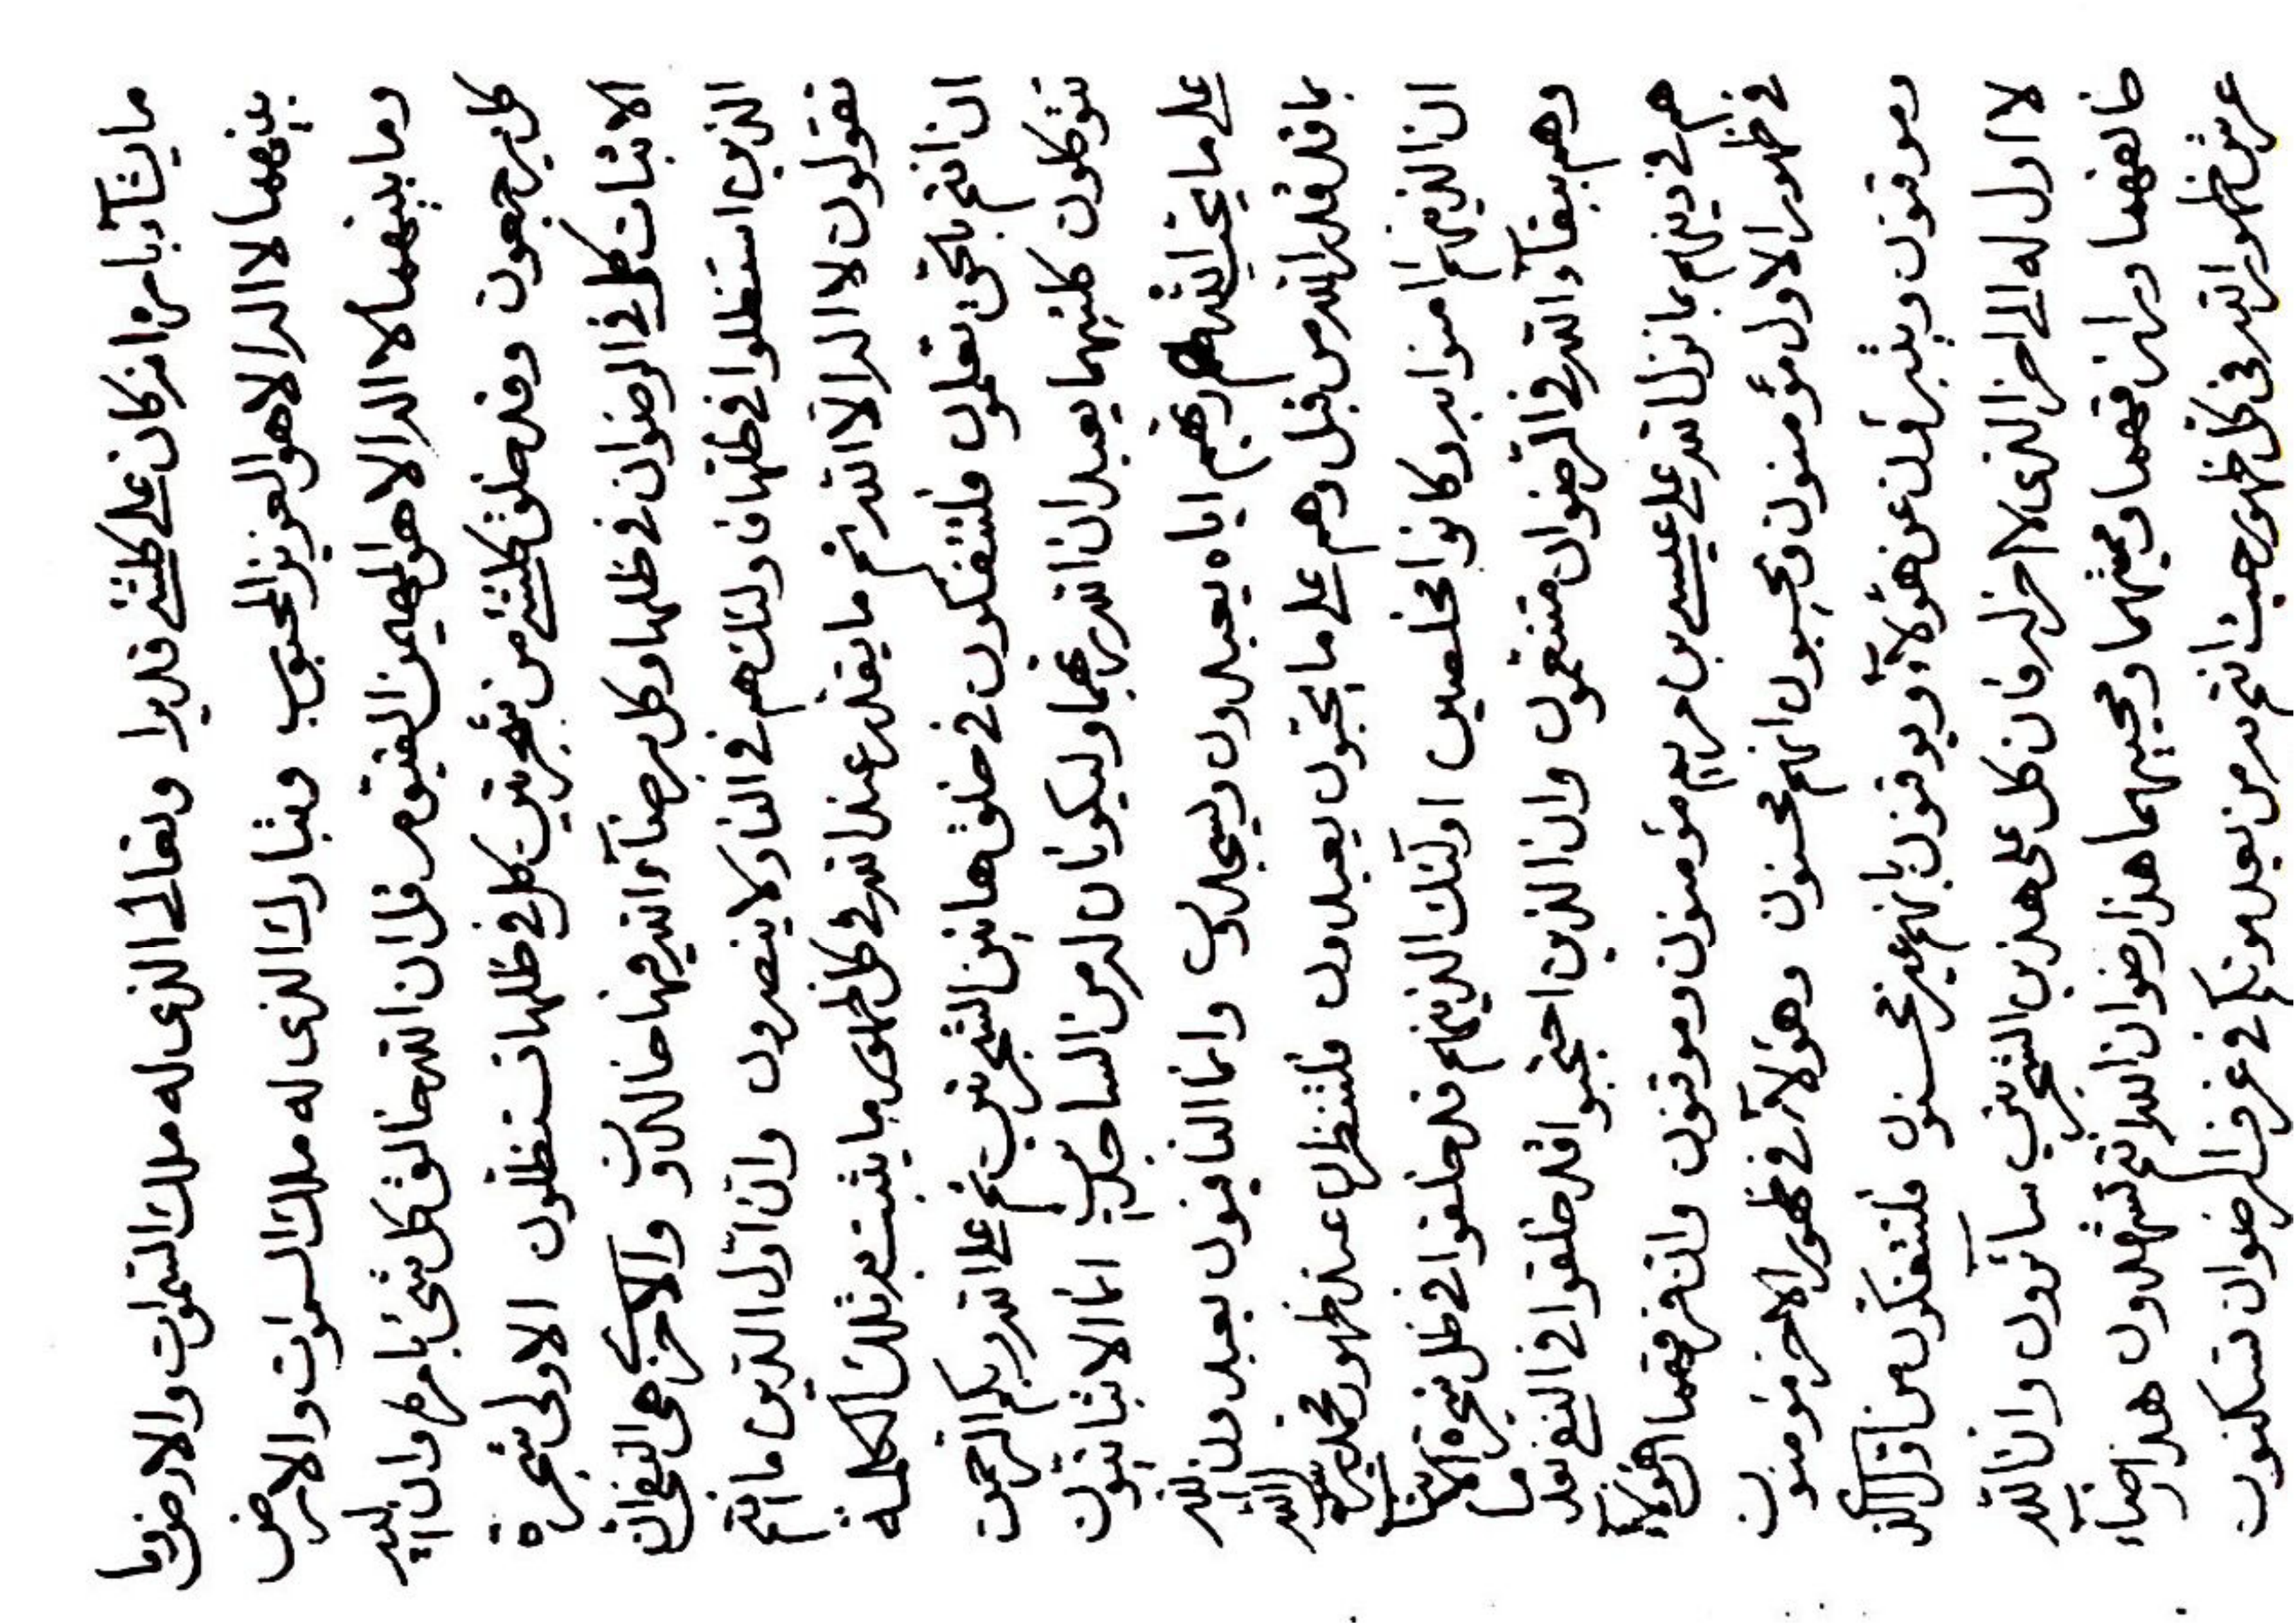 ما يشآء بامره انه كان على كلشئ قديرا وتعالى الذى له ملك السموات والارض وما
بينهما لا اله الا هو العزيز المحبوب وتبارك الذى له ملك السموات والارض
وما بينهما لا اله الا هو المهيمن القيوم قل ان الله خالق كل شئ بامره وان اليه
كل يرجعون وقد خلق كلشئ من شجرتين كل فى ظلهما تستظلون الاولى شجرة
الاثبات كل فى الرضوان فى ظلها وكل برضآء الله فيها خالدون والاخرى هى النفى ان
الذين استظلوا فى ظلها فاولئك هم فى النار لا ينصرون وان اول الذين ما انتم
تقولون لا اله الا الله ثم ما يقدر عند الله فى كل ظهور ما يثبت به تلك الكلمة
ان انتم بالحق تعلمون فلتتفكرون فى خلق هاتين الشجرتين ثم على الله ربكم الرحمن
تتوكلون كلتيهما يعبدان الله ربهما وليكونان له من الساجدين اما الاثباتيون
على ما يحب الله ربهم اياه يعبدون ويسجدون واما النافيون يعبدون الله
بما قد قدر الله من قبل وهم على ما يحبون يعبدون فلتنظرن عند ظهور محمد رسول الله
ان الذينهم امنوا به وكانوا مخلصين اولئك الذينهم قد خلقوا فى ظل شجرة الاثبات
وهم ببقآء الله فى الرضوان متنعمون وان الذين احتجبوا قد خلقوا فى النفى بعد ما
هم فى دينهم بما نزل الله على عيسى بن مريم مؤمنون وموقنون وان فرقهما هؤلآء
فى ظهور الاول مؤمنون ومحبون انهم محسنون وهؤلآء فى ظهور الاخر مؤمنون
وموقنون ويشرفون عن هؤلآء ويوقنون بانهم غير محسنون فلتتفكرن من اول الذى
لا اول له الى اخر الذى لا اخر له فان كل على هذين الشجرتين سآئرون وان الله
خالقهما ورازقهما ومميتهما ومحييهما هذا رضوان الله انتم تشهدون هذا رضآء
عرش ظهور الله فى كل ظهور حيث انتم به من بعد موتكم فى غرف الرضوان تسكنون